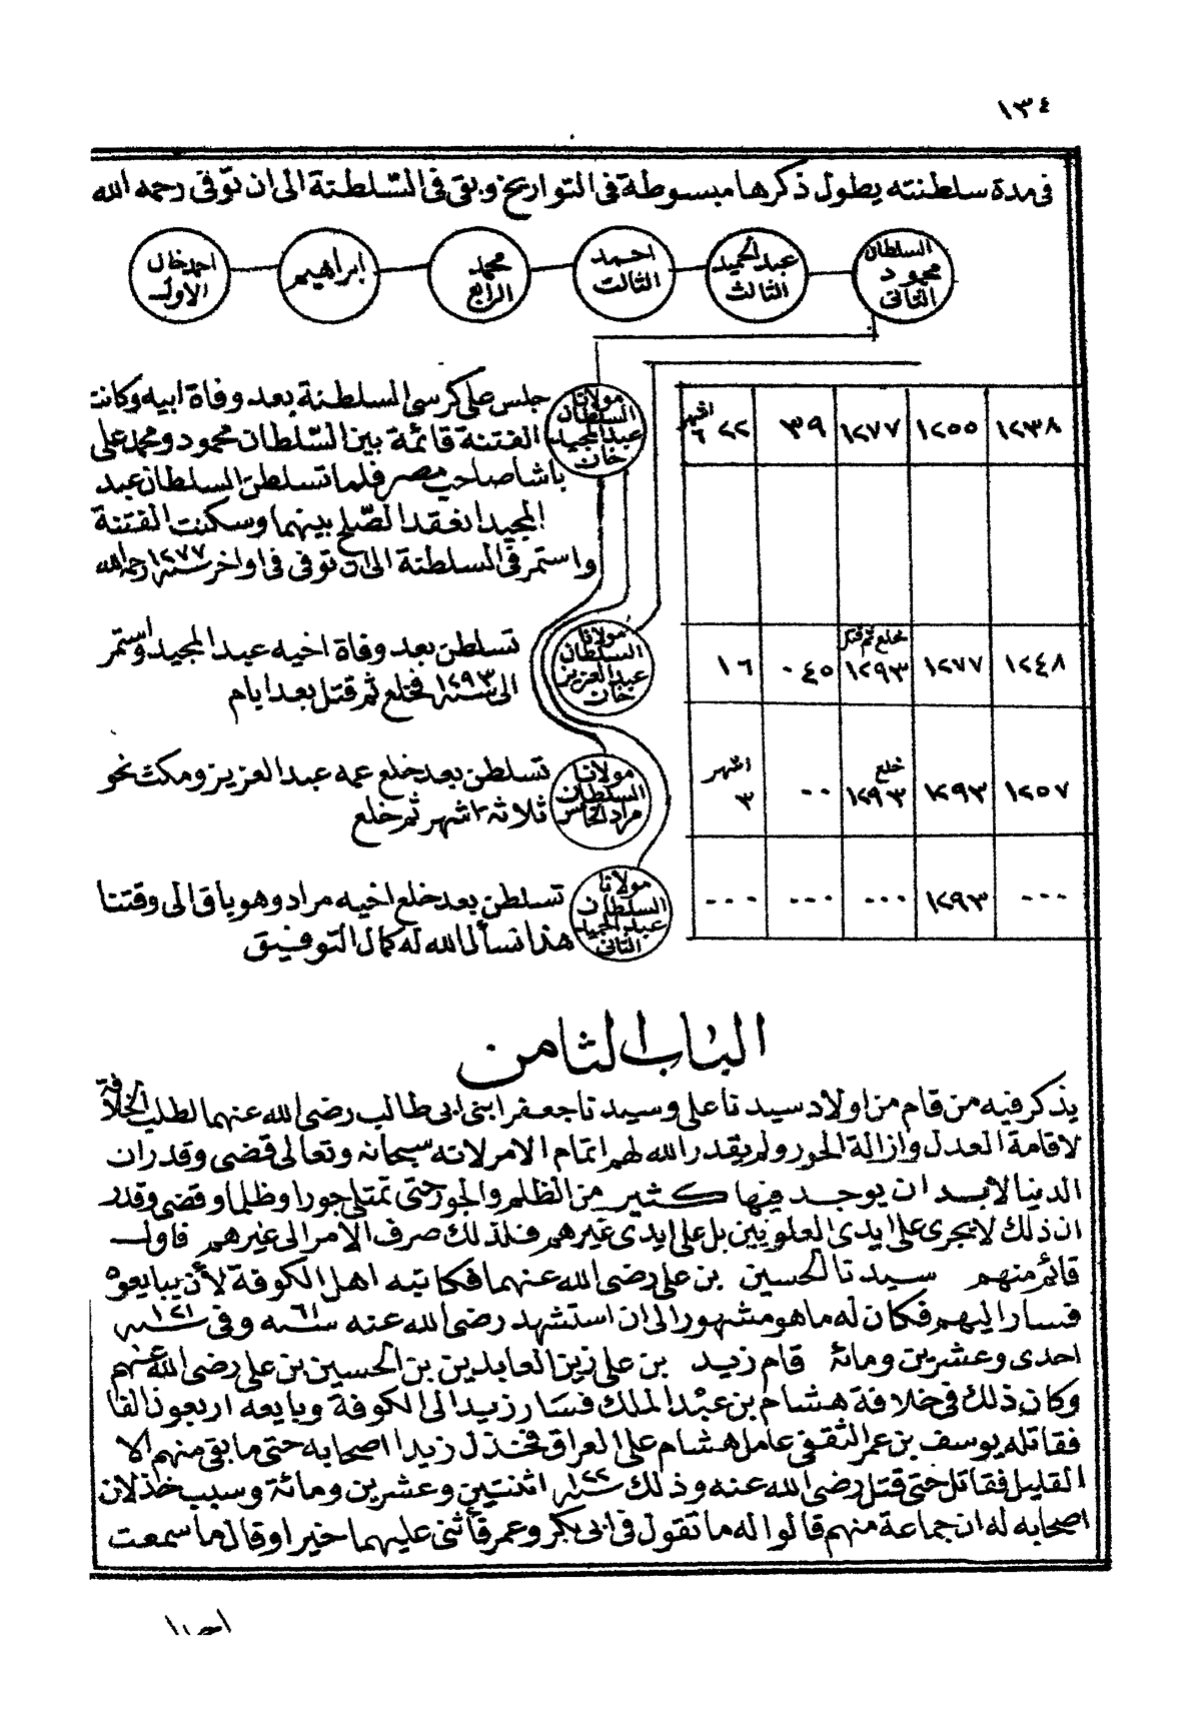 ١٣٤
فى مدة سلطنته يطول ذكرها مبسوطة فى التواريخ وبقى فى السّلطنة الى ان توفى رحمه الله
السلطان محمود الثانى
عبد الحميد الثالث
احمد الثالث
محمد الرابع
ابراهيم
احمد خان الاول
١٢٣٨ ١٢٥٥ ١٢٧٧ ٣٩ ٢٢ اشهر ٦
مولانا السلطان عبد المجيد خان
جلس على كرسى السلطنة بعد وفاة ابيه وكانت
الفتنة قائمة بين السّلطان محمود ومحمد على
باشا صاحب مصر فلما تسلطن السلطان عبد
المجيد انعقد الصّلح بينهما وسكنت الفتنة
واستمر فى السلطنة الى ان توفى فى اواخر سنة ١٢٧٧ رحمه الله
١٢٤٨ ١٢٧٧ خلع ثم قتل ١٢٩٣ ٤٥ ١٦
مولانا السلطان عبد العزيز خان
تسلطن بعد وفاة اخيه عبد المجيد واستمر
الى سنة ١٢٩٣ فخلع ثم قتل بعد ايام
١٢٥٧ ١٢٩٣ خلع ١٢٩٣ ٠٠ اشهر ٣
مولانا السلطان مراد الخامس
تسلطن بعد خلع عمه عبد العزيز ومكث نحو
ثلاثة اشهر ثم خلع
٠٠٠ ١٢٩٣ ٠٠٠ ٠٠٠ ٠٠٠
مولانا السلطان عبد الحميد الثانى
تسلطن بعد خلع اخيه مراد وهو باق الى وقتنا
هذا نسأل الله له كمال التوفيق
الباب الثامن
يذكر فيه من قام من اولاد سيدنا على وسيدنا جعفر ابنى ابى طالب رضى الله عنهما لطلب الخلافة
لاقامة العدل وازالة الجور ولم يقدر الله لهم اتمام الامر لانه سبحانه وتعالى قضى وقدر ان
الدنيا لابد ان يوجد فيها كثير من الظلم والجور حتى تمتلى جورا وظلما وقضى وقدر
ان ذلك لا يجرى على ايدى العلويين بل على ايدى غيرهم فلذلك صرف الأمر الى غيرهم فاول
قائم منهم سيدنا الحسين بن على رضى الله عنهما فكاتبه اهل الكوفة لأن يبايعوه
فسار اليهم فكان له ما هو مشهور الى ان استشهد رضى الله عنه سنة ٦١ وفى سنة ١٢١
احدى وعشرين ومائة قام زيد بن على زين العابدين بن الحسين بن على رضى الله عنهم
وكان ذلك فى خلافة هشام بن عبْد الملك فسَار زيد الى الكوفة وبايعه اربعون الفا
فقاتله يوسف بن عمر الثقفى عامل هشام على العراق فخذل زيدا اصحابه حتى ما بقى منهم الا
القليل فقاتل حتى قتل رضى الله عنه وذلك سنة ١٢٢ اثنتين وعشرين ومائة وسبب خذلان
اصحابه له ان جماعة منهم قالوا له ما تقول فى ابى بكر وعمر فأثنى عليهما خيرا وقال ما سمعت